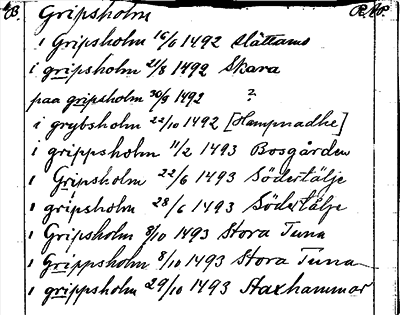 Gripsholm
i Gripsholm 16/6 1492 Slättams
i gripsholm 21/8 1492 Skara
paa gripsholm 30/9 1492 ?
i grybsholm 22/10 1492 [Hampnadhe]
i grippsholm 11/2 1493 Bosgården
i Gripsholm 22/6 1493 Södertälje
i gripsholm 28/6 1493 Södertälje
i Gripsholm 8/10 1493 Stora Tuna
i Grippsholm 8/10 1493 Stora Tuna
i grippsholm 29/10 1493 Staxhammar